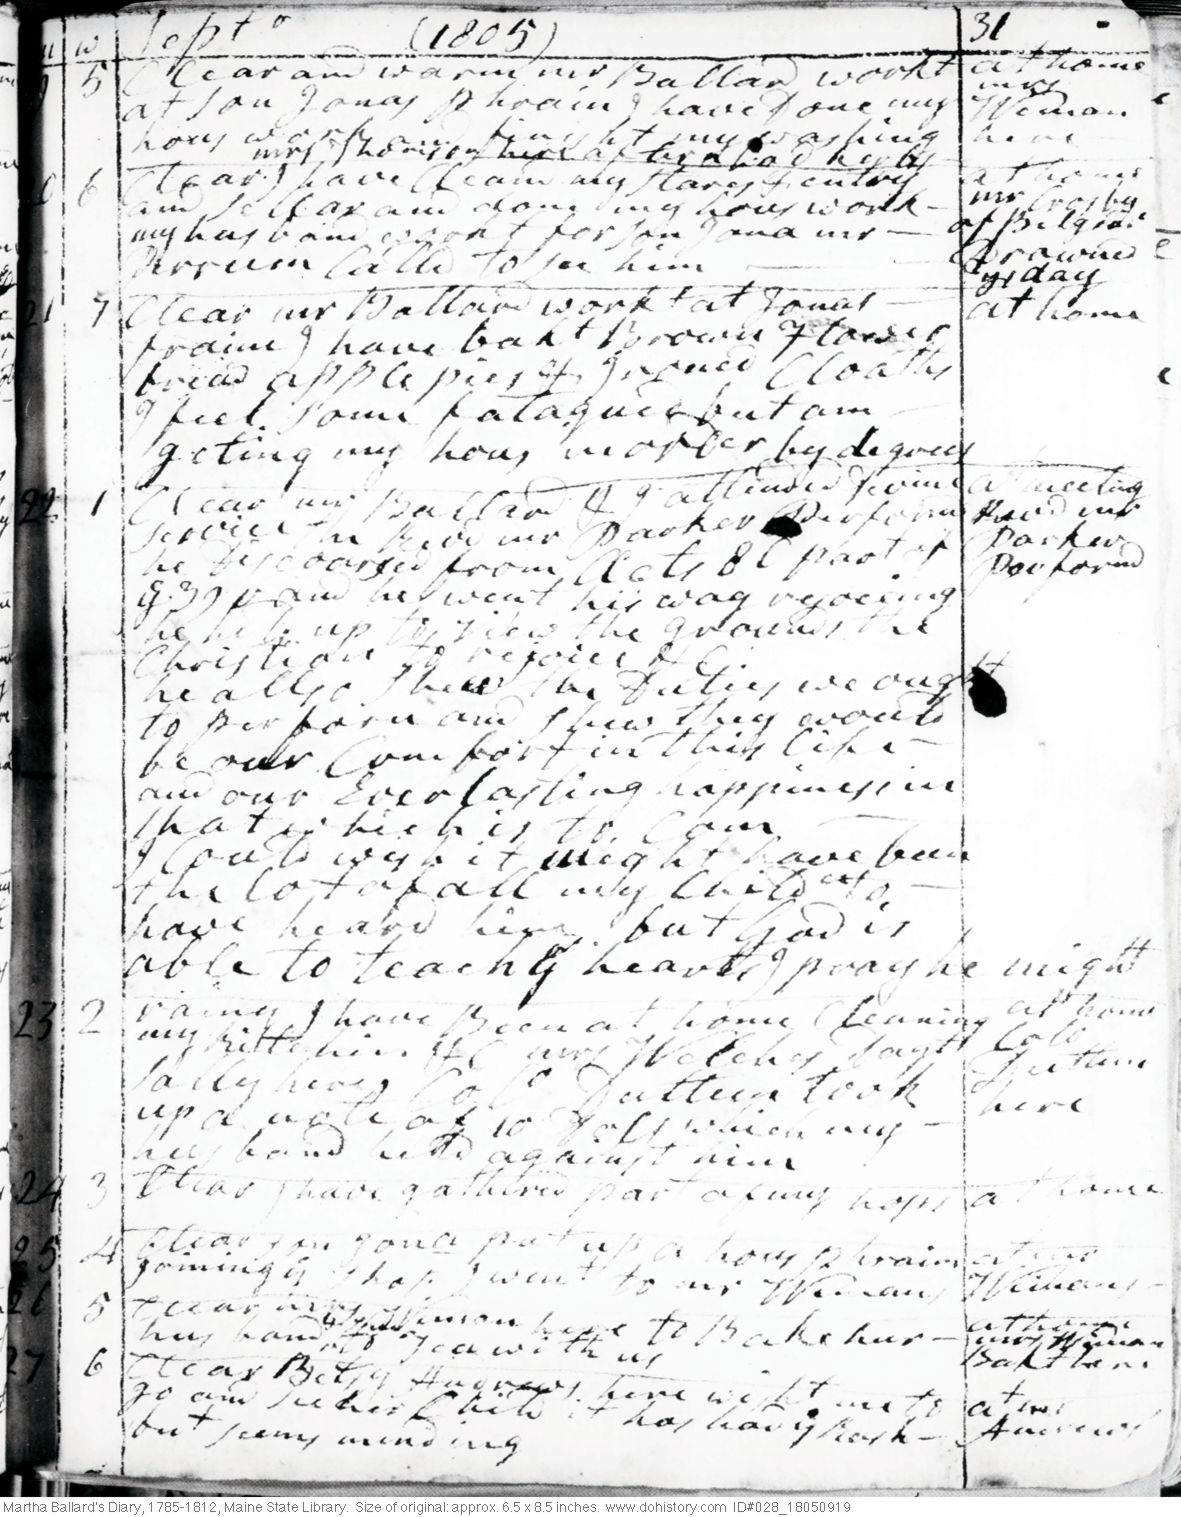 m w Sept r (1805) 31
5 Clear and warm mr Ballard workt at home
at son Jonas phraim I have Done my mrs Weman
hous work and finisht my washing here
mrs Thomson here after a bad herbs
20 6 Clear I have Cleand my Stares & entry at home
and Sellar and done my hous work - mr Crosby
my husband workt for son Jona mr - of Belgrai
Perrum Calld to see him Drowned
ysday
21 7 Clear mr Ballard workt at Jonas at home
fraim I have bakt Brown & flower
bread apple pies &c Ironed Cloaths
I feel some fatagued but am
geting my hous in order by degrees
22 1 Clear mr Ballard & I attended Divine at meeting
service Revd mr Parker Performd Revd mr
he Discoarsd from Acts 8 C part of Parker
39 v and he went his way rejoicing Performd
he held up to view the grounds the
Christian to rejoice &C
he allso shew the Duties we ought
to perform and shew they would
be our Comfort in this life -
and our Everlasting happiness in
that which is to Com
I Could wish it might have been
the lot of all my Childn to
have heard him but God is
able to teach ye hearts I pray he might
23 2 rainy I have Been at home Cleaning at home
my kitchin &C mrs Welches Dagt Coll
Sally here Coll Dutten took Dutten
up a note of 10 Dolls which my - here
husband held against him
24 3 Clear I have gathered part of my hops at home
25 4 Clear son Jona put up a hous phraim at mr
joining is shop I went to mr Wemans Wemans -
26 5 Clear mrs Weman here to Bake hur - at home
husband to Tea with us mrs Weman
Bakt here
27 6 Clear Betsy Andrews here wisht me to at mr
go and see her Child it has had ye Rash - Andrews
but seems mending
Martha Ballard's Diary, 1785-1812, Maine State Library. Size of original: approx. 6.5 x 8.5 inches. www.dohistory.com ID#028_18050919